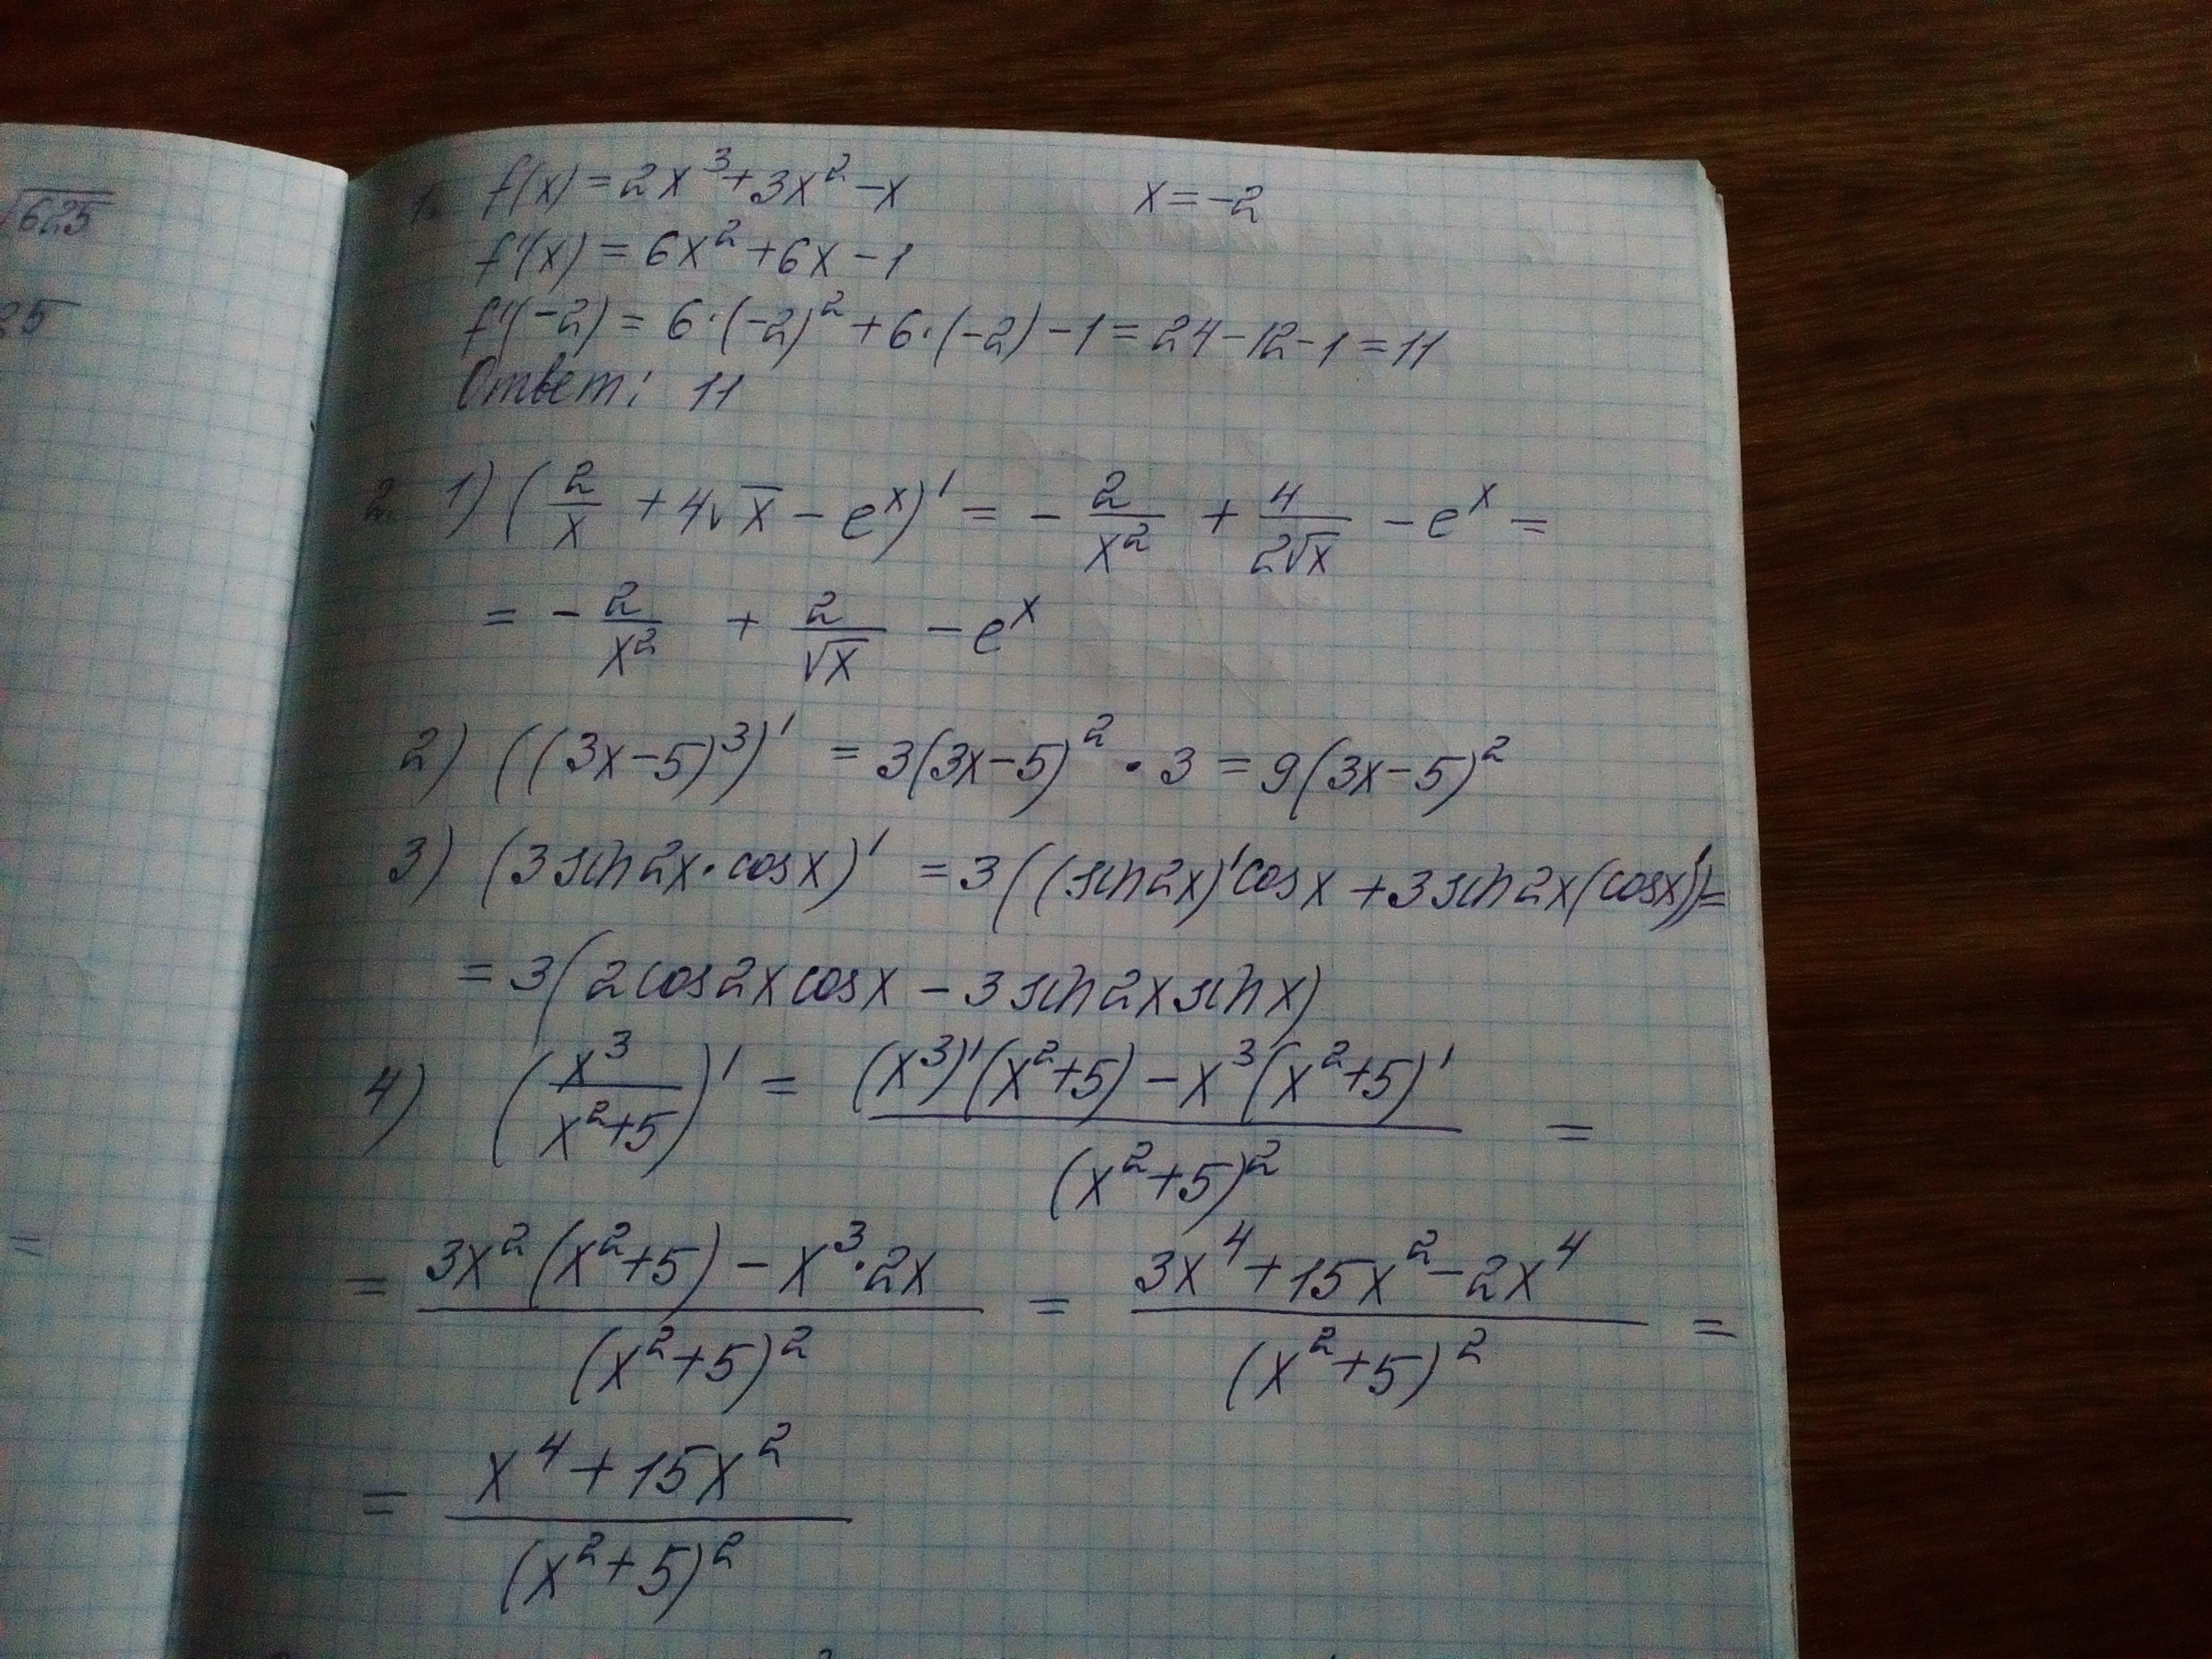 √625
25
1. f(x) = 2x³ + 3x² − x x = −2
f'(x) = 6x² + 6x − 1
f'(−2) = 6·(−2)² + 6·(−2) − 1 = 24 − 12 − 1 = 11
Ответ: 11
2. 1) (2/x + 4√x − eˣ)' = − 2/x² + 4/(2√x) − eˣ =
= − 2/x² + 2/√x − eˣ
2) ((3x−5)³)' = 3(3x−5)² · 3 = 9(3x−5)²
3) (3 sin2x · cosx)' = 3((sin2x)'cosx + 3 sin2x(cosx)') =
= 3(2cos2x cosx − 3 sin2x sinx)
4) (x³/(x²+5))' = ((x³)'(x²+5) − x³(x²+5)')/(x²+5)² =
= (3x²(x²+5) − x³·2x)/(x²+5)² = (3x⁴ + 15x² − 2x⁴)/(x²+5)² =
=
= (x⁴ + 15x²)/(x²+5)²